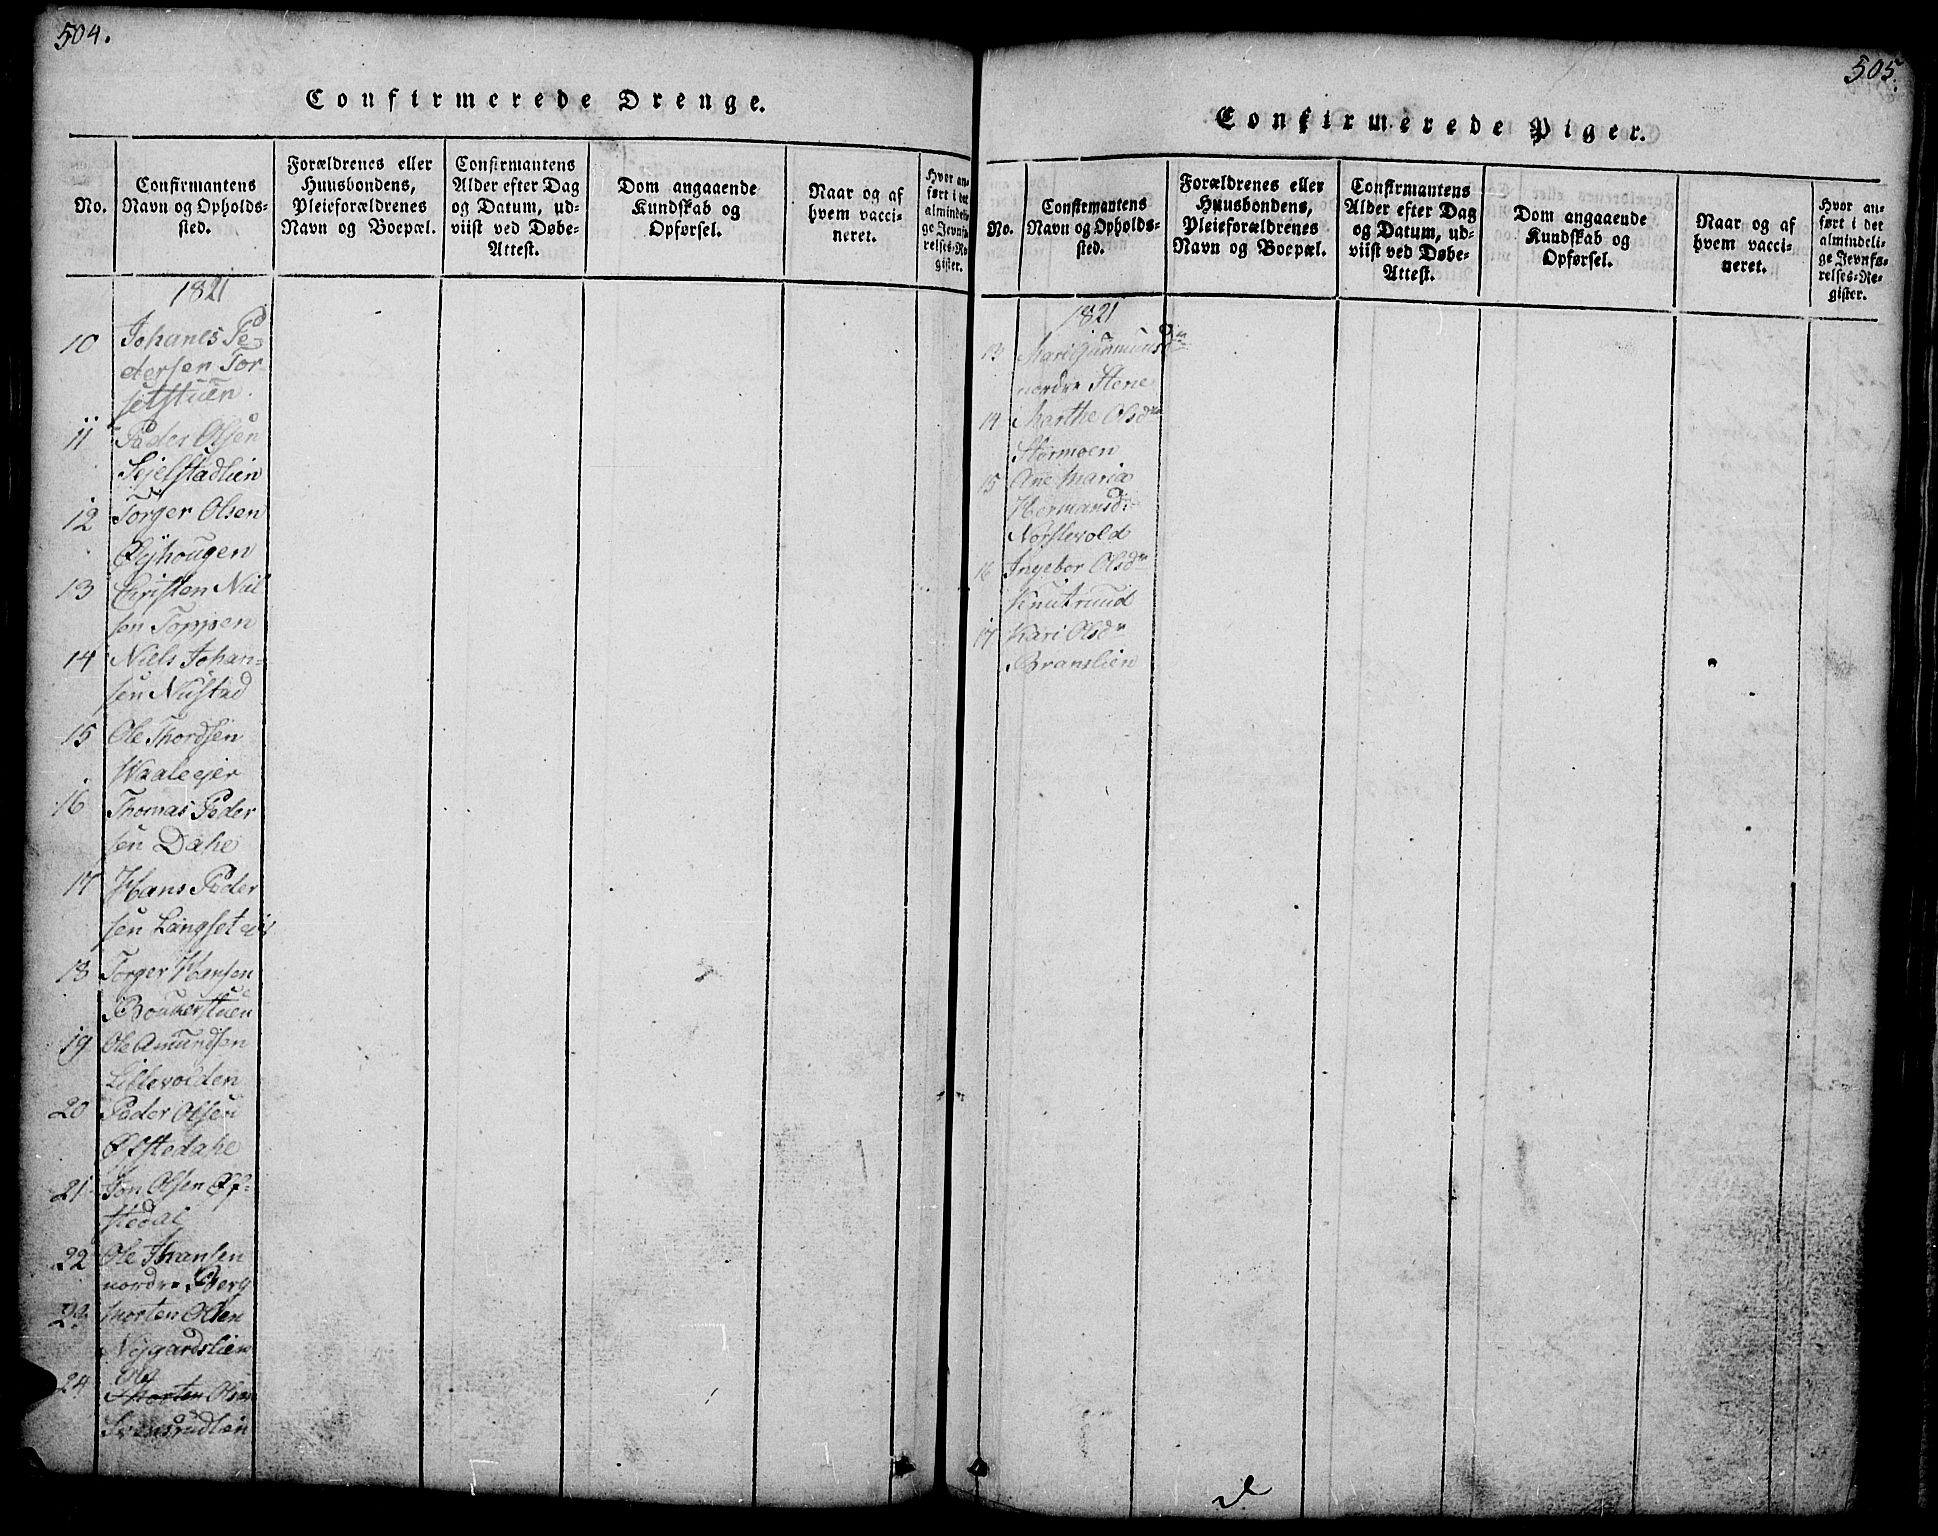 504.
Confirmerede Drenge.
No.
Confirmantens
Navn og Opholds-
sted.
Forældrenes eller
Huusbondens,
Pleieforældrenes
Navn og Boepæl.
Confirmantens
Alder efter Dag
og Datum, ud-
viist ved Døbe-
Attest.
Dom angaaende
Kundskab og
Opførsel.
Naar og af
hvem vacci-
neret.
Hvor an-
ført i det
almindeli-
ge Jevnfø-
relses-Re-
gister.
1821
10 Johanes Pe-
dersen Tor
setstuen.
11 Peder Olsen
Sejelstadlien
12 Torger Olsen
Øyhougen
13 Christen Niel
sen Toppen
14 Niels Johan-
sen Nustad
15 Ole Thordsen
Waaleejer
16 Thomas Peder
sen Dahe
17 Hans Peder
sen Langset
18 Torger Hansen
19 Ole Amundsen
Lillevolden
20 Peder Olsen
Øfstedahe
21 Jon Olsen Øf-
stedal
22 Ole
nordre Berg
23 Morten Olsen
Nygardslien
24 Ole
Morten Olsen
Svensrudlien
505.
Confirmerede Piger.
No.
Confirmantens
Navn og Opholds-
sted.
Forældrenes eller
Huusbondens,
Pleieforældrenes
Navn og Boepæl.
Confirmantens
Alder efter Dag
og Datum, ud-
viist ved Døbe-
Attest.
Dom angaaende
Kundskab og
Opførsel.
Naar og af
hvem vacci-
neret.
Hvor an-
ført i det
almindeli-
ge Jevnfø-
relses-Re-
gister.
1821
13 Mari Gunmunsdr
nordre Stene
14 Marthe Olsdr
Stormoen
15 Ane Maria
Hermansd:
Norstevold
16 Ingebor Olsdr
Knutruud
17 Kari Olsdr
Branslien